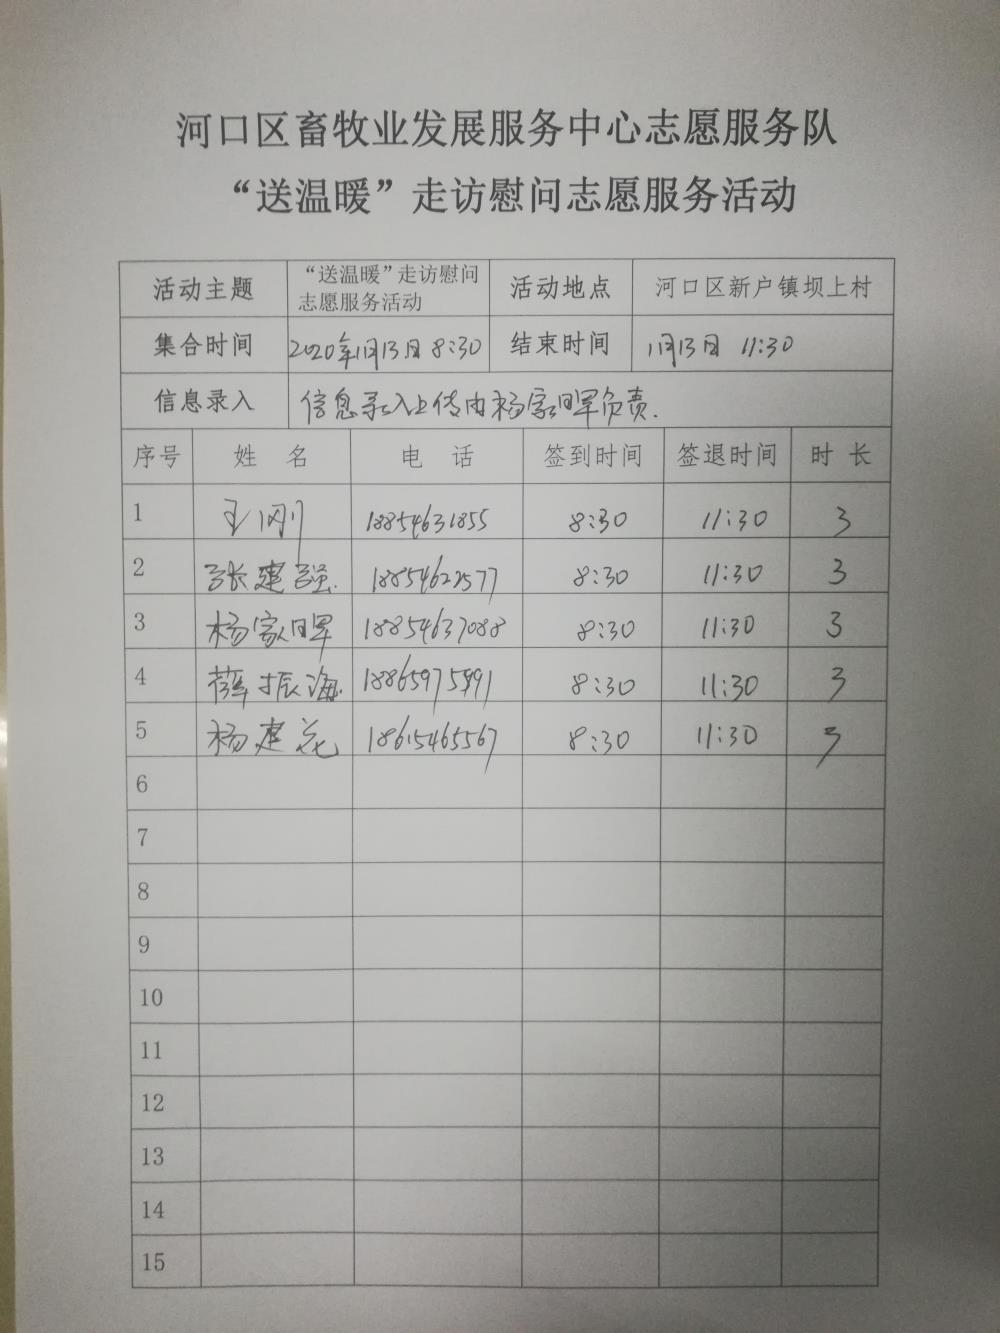 河口区畜牧业发展服务中心志愿服务队
“送温暖”走访慰问志愿服务活动
活动主题 “送温暖”走访慰问志愿服务活动 活动地点 河口区新户镇坝上村
集合时间 2020年1月13日 8:30 结束时间 1月13日 11:30
信息录入 信息录入上传由杨家晖负责.
序号 姓 名 电 话 签到时间 签退时间 时 长
1 王刚 18854631855 8:30 11:30 3
2 张建强 18854622577 8:30 11:30 3
3 杨家 18854637088 8:30 11:30 3
4 薛振海 8:30 11:30 3
5 杨建花 18615465567 8:30 11:30 3
6
7
8
9
10
11
12
13
14
15